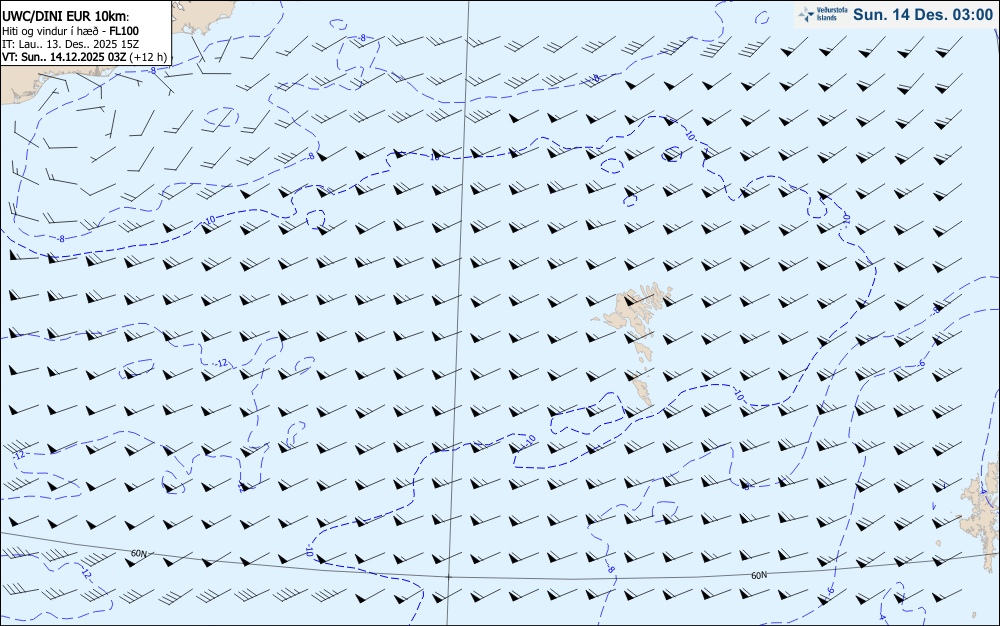 UWC/DINI EUR 10km:
Hiti og vindur í hæð - FL100
IT: Lau.. 13. Des.. 2025 15Z
VT: Sun.. 14.12.2025 03Z (+12 h)
Veðurstofa
Íslands
Sun. 14 Des. 03:00
-8
-8
-8
-10
-8
-10
-10
-8
-10
-12
-6
-10
-10
-12
-4
60N
-10
60N
-12
-8
-6
-4